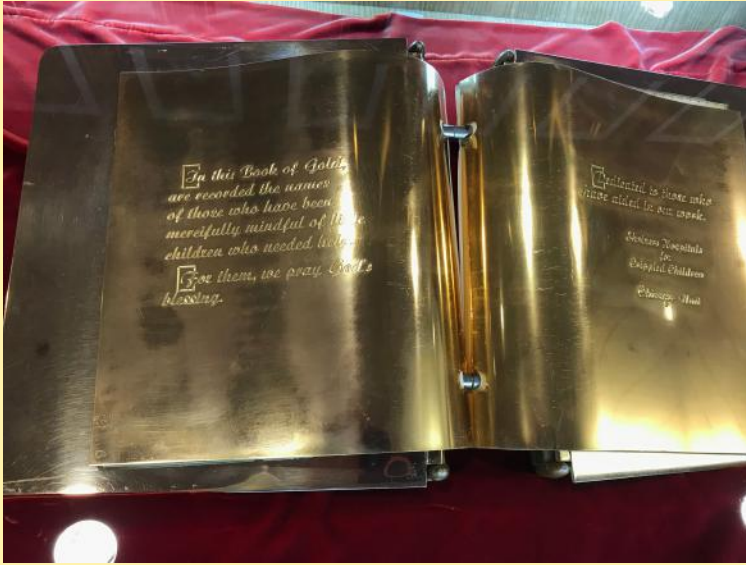 In this Book of Gold,
are recorded the names
of those who have been
mercifully mindful of little
children who needed help.
For them, we pray God's
blessing.
Dedicated to those who
have aided in our work.
Shriners Hospitals
for
Crippled Children
Chicago Unit